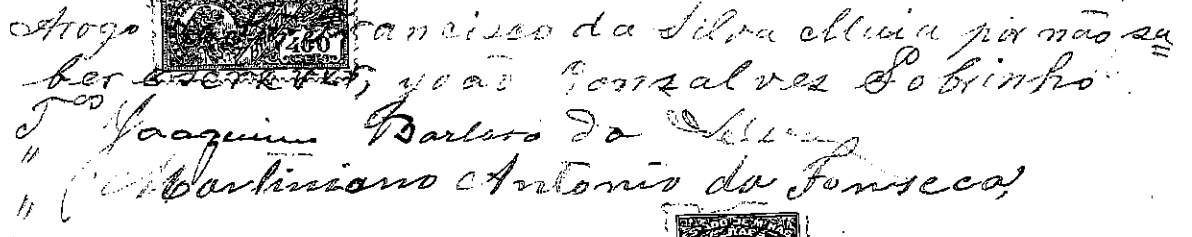 Arogo Francisco da Silva por não sa
ber escrever, João Gonsalves Sobrinho
T.as Joaquim Barboso da Silva
" Martiniano Antonio da Fonseca,